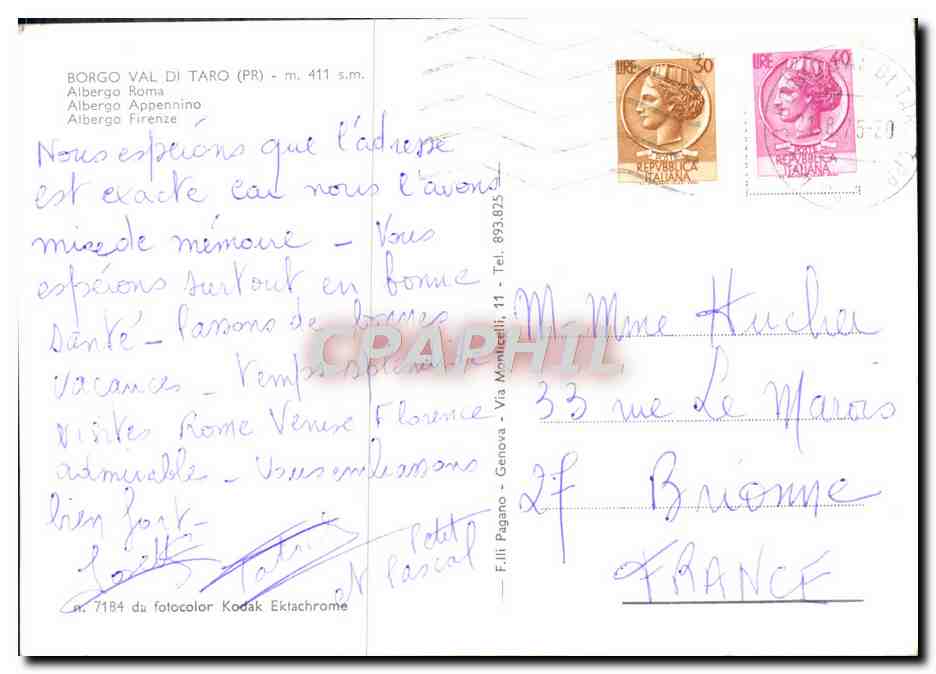 BORGO VAL DI TARO (PR) - m. 411 s.m.
Albergo Roma
Albergo Appennino
Albergo Firenze
Nous espérons que l'adresse
est exacte car nous l'avons
mise de mémoire - Vous
espérons surtout en bonne
santé - Passons de bonnes
vacances - Temps
visites Rome Venise Florence
admirable - Vous embrassons
bien fort -
Petit
Pascal
n. 7184 du fotocolor Kodak Ektachrome
F.lli Pagano - Genova - Via Monticelli, 11 - Tel. 893.825
LIRE 30
POSTE
REPVBBLICA
ITALIANA
LIRE 40
POSTE
REPVBBLICA
ITALIANA
M. Mme Hucher
33 rue Le Marois
27 Brionne
FRANCE
CPAPHIL